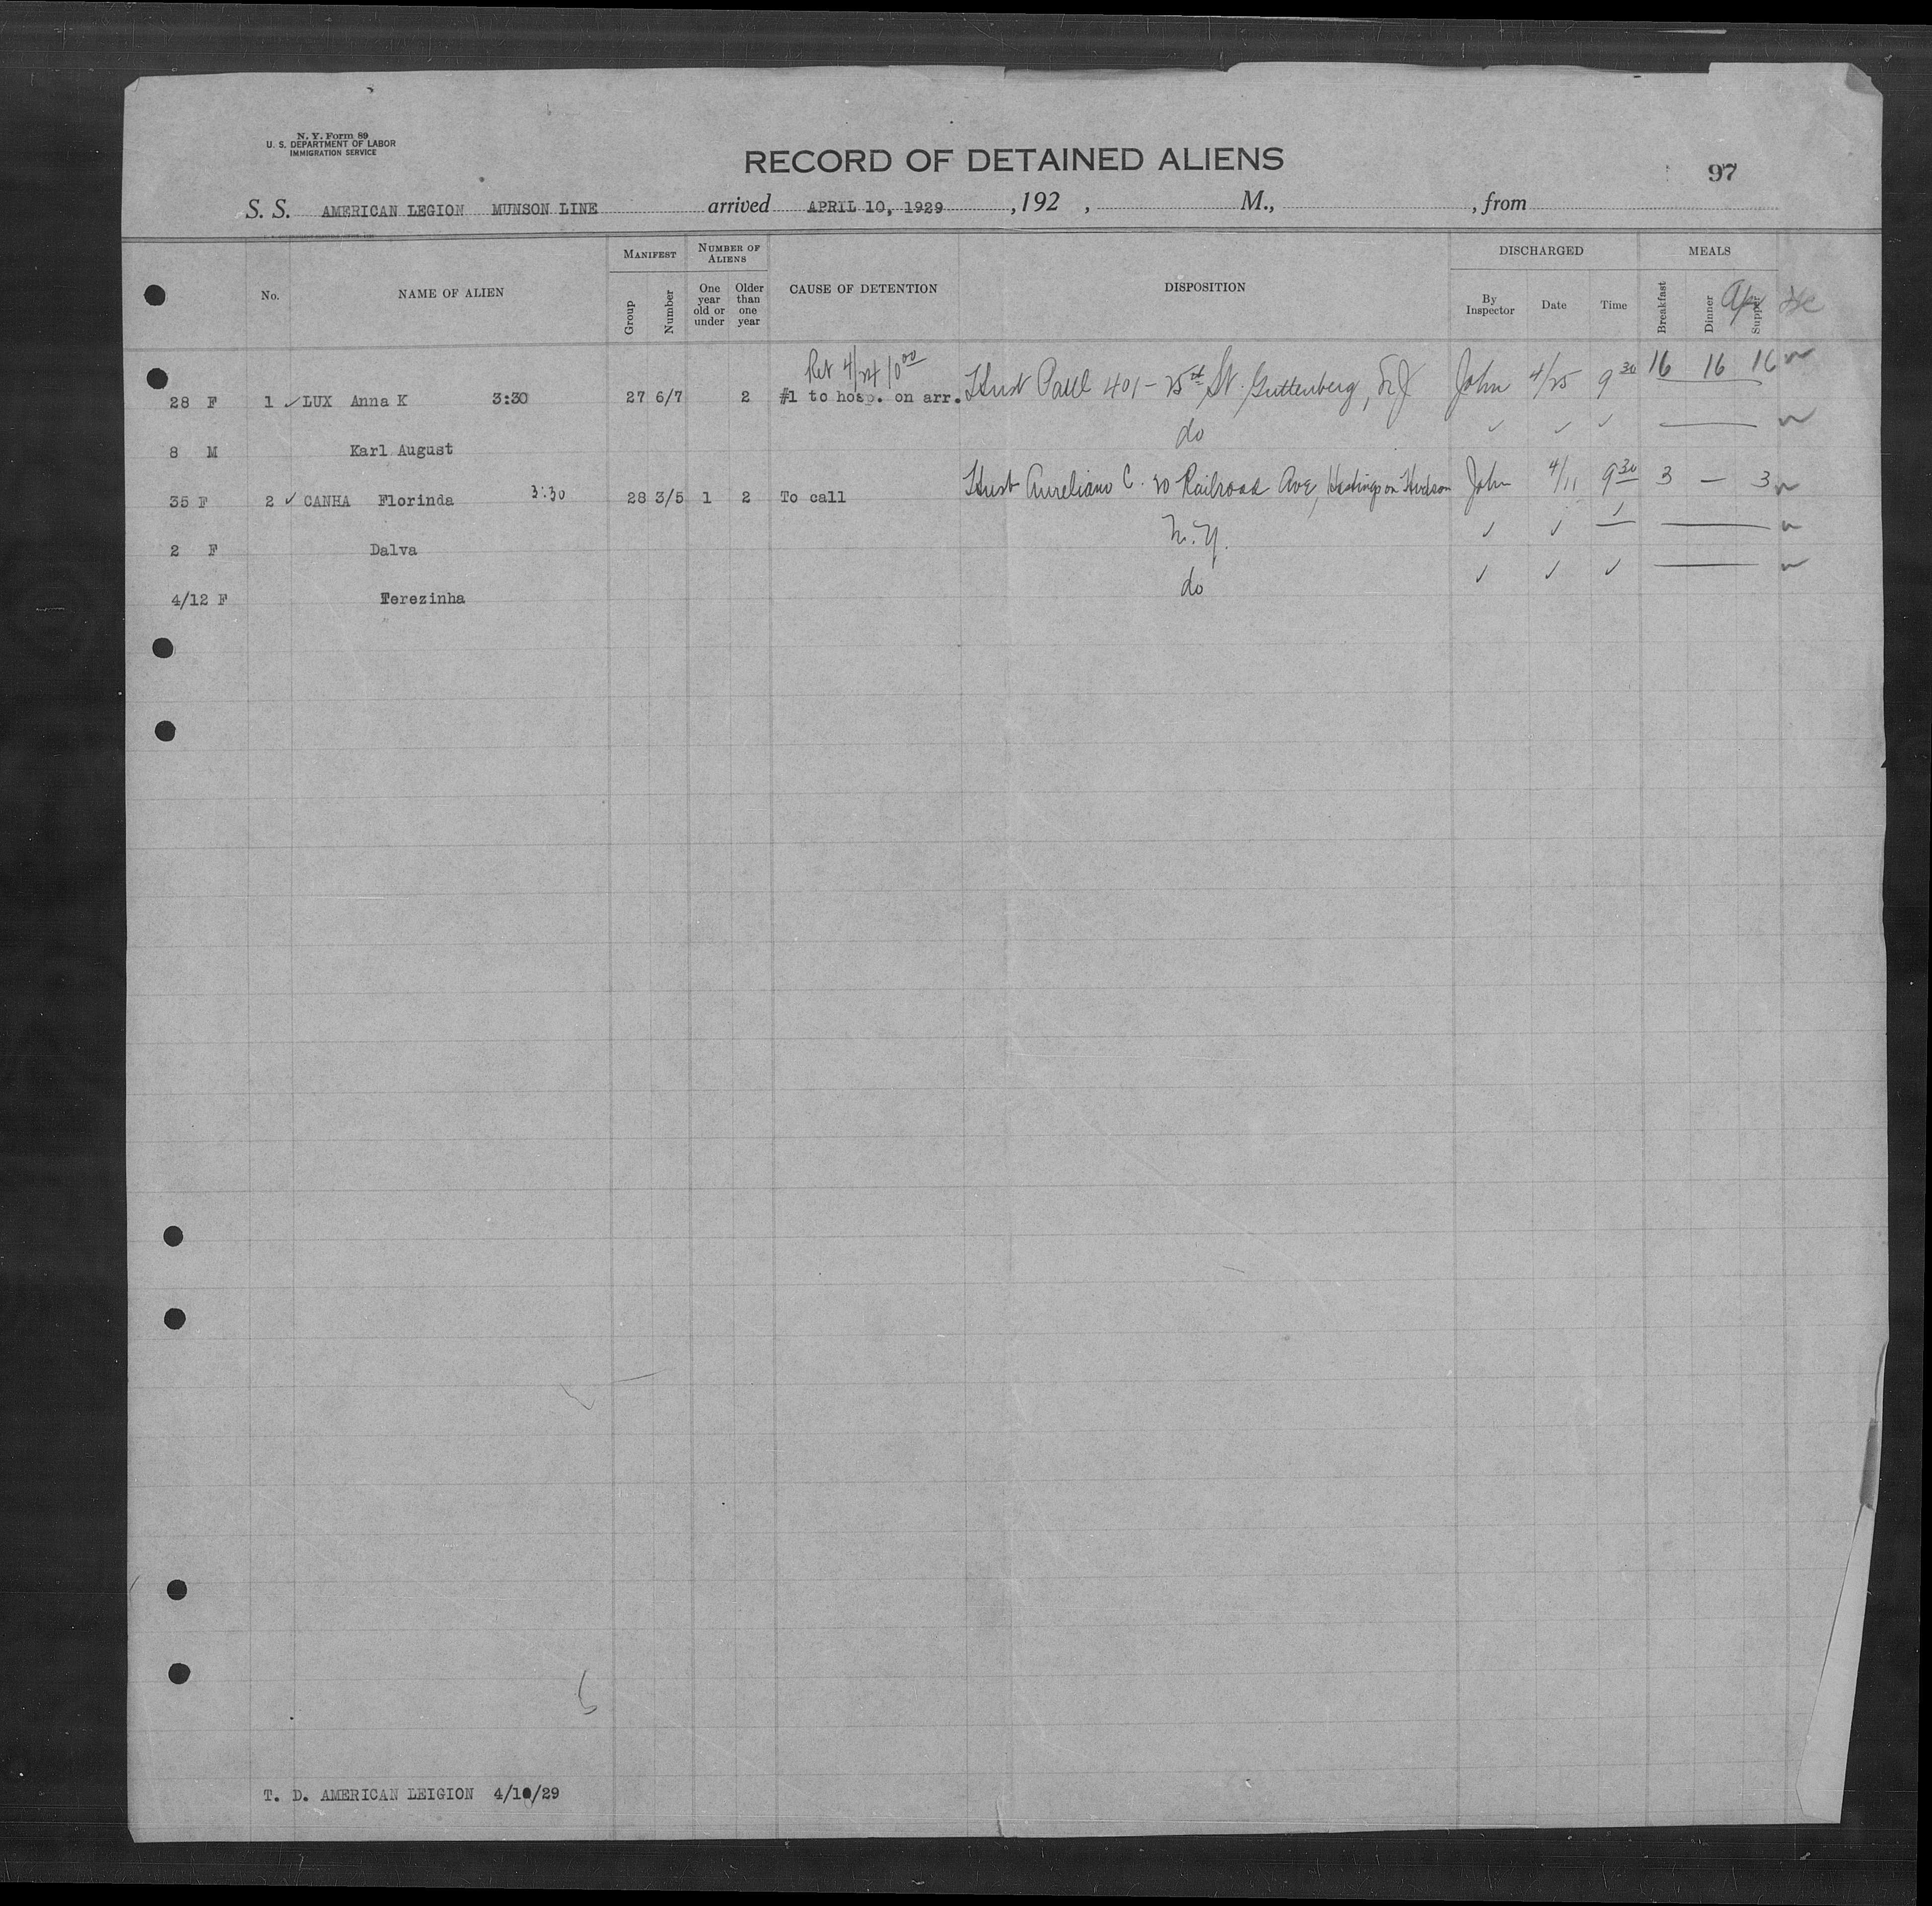 N. Y. Form 89
U. S. DEPARTMENT OF LABOR
IMMIGRATION SERVICE
RECORD OF DETAINED ALIENS
97
S. S. AMERICAN LEGION MUNSON LINE arrived APRIL 10, 1929, 192 , M., , from
No. NAME OF ALIEN MANIFEST Group Number NUMBER OF ALIENS One year old or under Older than one year CAUSE OF DETENTION DISPOSITION DISCHARGED By Inspector Date Time MEALS Breakfast Dinner Supper
Ret 4/24 10 00
28 F 1 ✓ LUX Anna K 3:30 27 6/7 2 #1 to hosp. on arr. Hust Paul 401 - 25th St. Guttenberg, NJ John 4/25 9 30 16 16 16
8 M Karl August do ✓ ✓ ✓
35 F 2 ✓ CANHA Florinda 3:30 28 3/5 1 2 To call Hust Aureliano C. 20 Railroad Ave, Hastings on Hudson John 4/11 9 30 3 — 3
2 F Dalva N.Y. ✓ ✓ ✓
4/12 F Terezinha do ✓ ✓ ✓
T. D. AMERICAN LEIGION 4/10/29